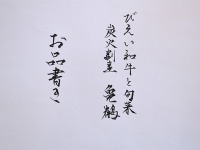 びえい和牛と旬菜
炭火割烹 兔鶴
お品書き